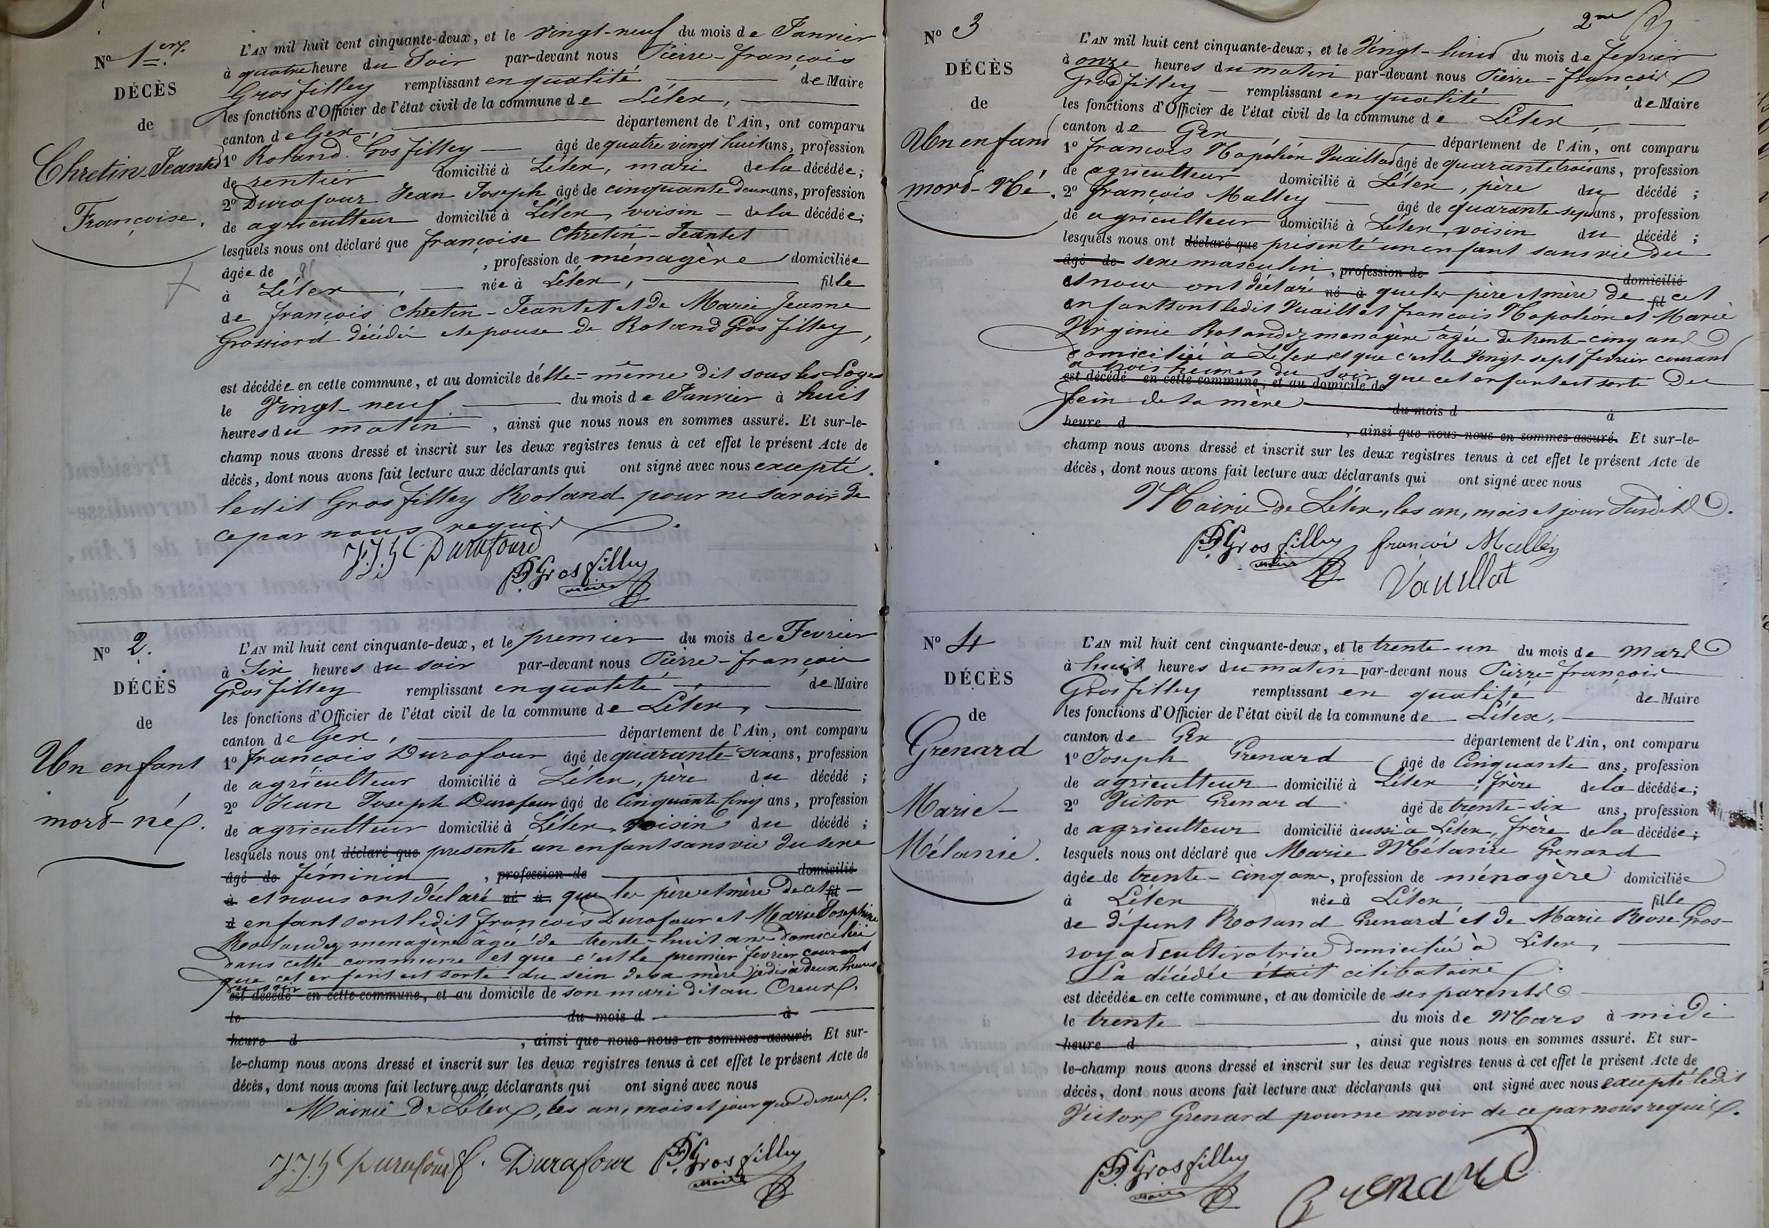 Nº 1er.
DÉCÈS
de
Chretin-Jeantet
Françoise.
L'AN mil huit cent cinquante-deux, et le vingt-neuf du mois de Janvier
à quatre heure du Soir par-devant nous Pierre-François
Grosfilley remplissant en qualité de Maire
les fonctions d'Officier de l'état civil de la commune de Lélex,
canton de Gex, département de l'Ain, ont comparu
1º Roland Grosfilley âgé de quatre vingt huit ans, profession
de rentier domicilié à Lélex, mari de la décédée;
2º Durafour Jean Joseph âgé de cinquante deux ans, profession
de agriculteur domicilié à Lélex, voisin de la décédée;
lesquels nous ont déclaré que françoise Chretin-Jeantet
âgée de , profession de ménagère domiciliée
à Lélex, née à Lélex, fille
de françois Chretin-Jeantet et de Marie Jeanne
Grossiord décédée épouse de Roland Grosfilley,
est décédée en cette commune, et au domicile d'elle-même dit sous les Loges
le Vingt-neuf du mois de Janvier à huit
heures du matin, ainsi que nous nous en sommes assuré. Et sur-le-
champ nous avons dressé et inscrit sur les deux registres tenus à cet effet le présent Acte de
décès, dont nous avons fait lecture aux déclarants qui ont signé avec nous excepté
ledit Grosfilley Roland pour ne savoir de
ce par nous requis
J.J.h Durafourd
P.f. Grosfilley
Maire
Nº 2.
DÉCÈS
de
Un enfant
mort-né.
L'AN mil huit cent cinquante-deux, et le premier du mois de Fevrier
à Six heures du soir par-devant nous Pierre-françois
Grosfilley remplissant en qualité de Maire
les fonctions d'Officier de l'état civil de la commune de Lélex,
canton de Gex, département de l'Ain, ont comparu
1º françois Durafour âgé de quarante six ans, profession
de agriculteur domicilié à Lélex, père du décédé;
2º Jean Joseph Durafour âgé de Cinquante Cinq ans, profession
de agriculteur domicilié à Lélex, voisin du décédé;
lesquels nous ont déclaré que présenté un enfant sans vie du sexe
âgé de féminin, profession de domicilié
à et nous ont déclaré né à que les père et mère de cet fil
d enfant sont ledit françois Durafour et Marie Josephine
Rolandez menagère âgée de trente-huit ans domiciliée
dans cette commune et que c'est le premier fevrier courant
que cet enfant est sorti du sein de sa mère à deux heures
du soir
est décédé en cette commune, et au domicile de son mari dit au Creux.
le du mois d à
heure d , ainsi que nous nous en sommes assuré. Et sur-
le-champ nous avons dressé et inscrit sur les deux registres tenus à cet effet le présent Acte de
décès, dont nous avons fait lecture aux déclarants qui ont signé avec nous
Mairie de Lélex, les an, mois et jour que dessus.
J.J.h Durafour f. Durafour P.f. Grosfilley
Maire
2me
Nº 3
DÉCÈS
de
Un enfant
mort-Né.
L'AN mil huit cent cinquante-deux, et le Vingt-huit du mois de fevrier
à onze heures du matin par-devant nous Pierre-françois
Grosfilley remplissant en qualité de Maire
les fonctions d'Officier de l'état civil de la commune de Lélex,
canton de Gex département de l'Ain, ont comparu
1º françois Napoléon Vuaillat âgé de quarante trois ans, profession
de agriculteur domicilié à Lélex, père du décédé;
2º françois Malley âgé de quarante-sept ans, profession
de agriculteur domicilié à Lélex, voisin du décédé;
lesquels nous ont déclaré que présenté un enfant sans vie du
âgé de sexe masculin, profession de domicilié
et nous ont déclaré né à que les père et mère de fil cet
enfant sont ledit Vuaillat françois Napoléon et Marie
Virginie Rolandez menagère âgée de trente-cinq ans
domiciliée à Lélex et que c'est le Vingt sept fevrier courant
à trois heures du soir que cet enfant est sorti du
est décédé en cette commune, et au domicile de
sein de sa mère du mois d à
heure d , ainsi que nous nous en sommes assuré. Et sur-le-
champ nous avons dressé et inscrit sur les deux registres tenus à cet effet le présent Acte de
décès, dont nous avons fait lecture aux déclarants qui ont signé avec nous
Mairie de Lélex, les an, mois et jour susdits.
P.f. Grosfilley françois Malley
Maire
Vauillat
Nº 4
DÉCÈS
de
Grenard
Marie-
Mélanie.
L'AN mil huit cent cinquante-deux, et le trente-un du mois de Mars
à huit heures du matin par-devant nous Pierre-françois
Grosfilley remplissant en qualité de Maire
les fonctions d'Officier de l'état civil de la commune de Lélex,
canton de Gex département de l'Ain, ont comparu
1º Joseph Grenard âgé de Cinquante ans, profession
de agriculteur domicilié à Lélex, frère de la décédée;
2º Victor Grenard âgé de trente-six ans, profession
de agriculteur domicilié aussi à Lélex, frère de la décédée;
lesquels nous ont déclaré que Marie Mélanie Grenard
âgée de trente-cinq ans, profession de ménagère domiciliée
à Lélex née à Lélex, fille
de défunt Roland Grenard et de Marie Rose Gros-
royat cultivatrice domiciliée à Lélex,
La décédée était célibataire
est décédée en cette commune, et au domicile de ses parents
le trente du mois de Mars à midi
heure d , ainsi que nous nous en sommes assuré. Et sur-
le-champ nous avons dressé et inscrit sur les deux registres tenus à cet effet le présent Acte de
décès, dont nous avons fait lecture aux déclarants qui ont signé avec nous excepté ledit
Victor Grenard pour ne savoir de ce par nous requis.
P.f. Grosfilley
Maire
Grenard